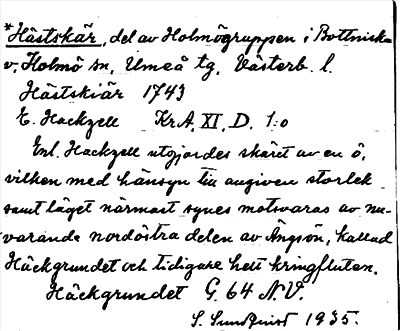 *Hästskär, del av Holmögruppen i Bottniska
v. Holmö sn, Umeå tg, Västerb. l.
Hästskiär 1743
E. Hackzell KrA. XI. D. 1:o
Enl. Hackzell utgjordes skäret av en ö,
vilken med hänsyn till angiven storlek
samt läget närmast synes motsvaras av nu-
varande nordöstra delen av Ängsön, kallad
Häckgrundet och tidigare helt kringfluten.
Häckgrundet G. 64 N.V.
S. Sundqvist 1935.